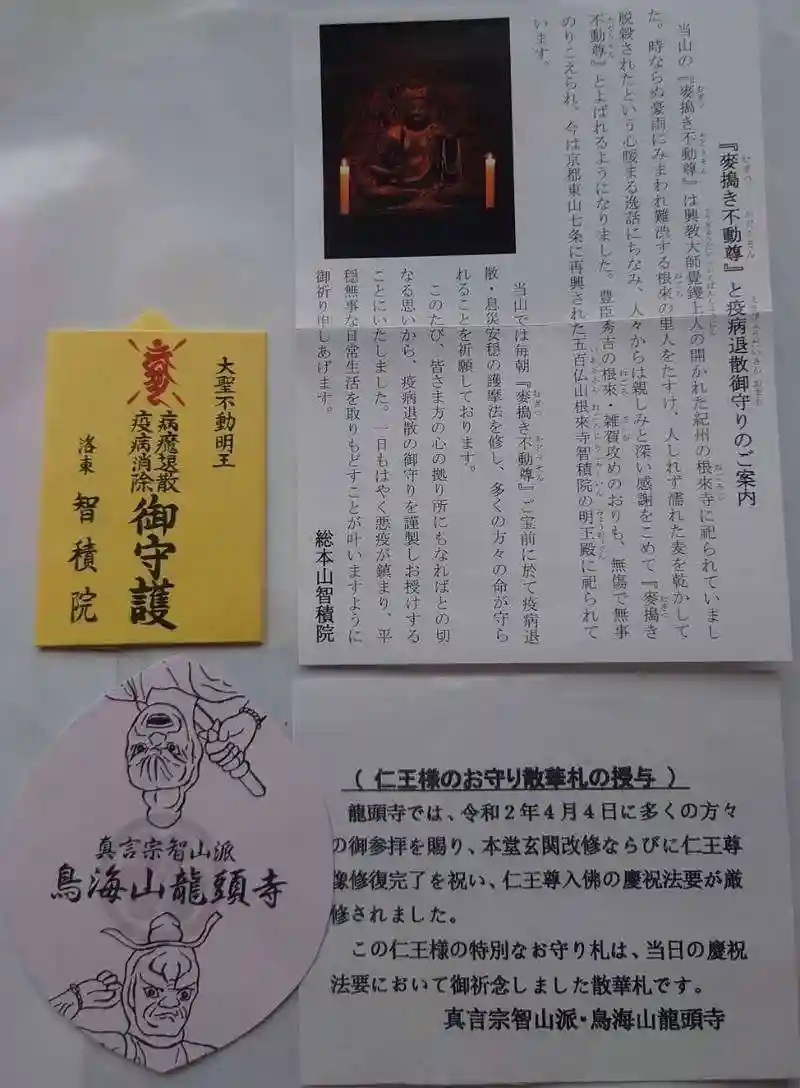 『麥搗き不動尊』と疫病退散御守りのご案内
当山の『麥搗き不動尊』は興教大師覺鑁上人の開かれた紀州の根來寺に祀られていまし
た。時ならぬ豪雨にみまわれ難渋する根來の里人をたすけ、人しれず濡れた麦を乾かして
脱穀されたという心暖まる逸話にちなみ、人々からは親しみと深い感謝をこめて『麥搗き
不動尊』とよばれるようになりました。豊臣秀吉の根來・雑賀攻めのおりも、無傷で無事
のりこえられ、今は京都東山七条に再興された五百仏山根來寺智積院の明王殿に祀られて
います。
当山では毎朝『麥搗き不動尊』ご宝前に於て疫病退
散・息災安穏の護摩法を修し、多くの方々の命が守ら
れることを祈願しております。
このたび、皆さま方の心の拠り所にもなればとの切
なる思いから、疫病退散の御守りを謹製しお授けする
ことにいたしました。一日もはやく悪疫が鎮まり、平
穏無事な日常生活を取りもどすことが叶いますように
御祈り申しあげます。
総本山智積院
大聖不動明王
病魔退散
疫病消除
御守護
洛東 智積院
真言宗智山派
鳥海山龍頭寺
（ 仁王様のお守り散華札の授与 ）
龍頭寺では、令和２年４月４日に多くの方々
の御参拝を賜り、本堂玄関改修ならびに仁王尊
像修復完了を祝い、仁王尊入佛の慶祝法要が厳
修されました。
この仁王様の特別なお守り札は、当日の慶祝
法要において御祈念しました散華札です。
真言宗智山派・鳥海山龍頭寺